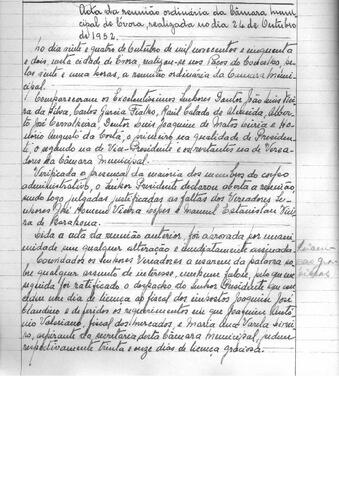 Acta da reunião ordinária da Câmara Muni-
cipal de Evora, realizada no dia 24 de Outubro
de 1952.
No dia vinte e quatro de Outubro de mil novecentos e cinquenta
e dois, nesta cidade de Evora, realizou-se nos Paços do Concelho, pe-
las vinte e uma horas, a reunião ordinária da Camara Muni-
cipal.
Compareceram os Excelentissimos Senhores Doutor João Luis Viei-
ra da Silva, Carlos Garcia Fialho, Raúl Calado de Almeida, Alber-
to José Carvalheira, Doutor Luis Joaquim de Matos e Ho-
nório Augusto da Costa, o primeiro na qualidade de Presiden-
te, o segundo na de Vice-Presidente e os restantes na de Verea-
dores da Câmara Municipal.
Verificada a presença da maioria dos membros do corpo
administrativo, o Senhor Presidente declarou aberta a reunião,
sendo logo julgadas justificadas as faltas dos Vereadores Se-
nhores José Homem Vieira Lopes e Manuel Estanislau Viei-
ra de Barahona.
Lida a acta da reunião anterior, foi aprovada por unani-
midade sem qualquer alteração e imediatamente assinada.
Convidados os Senhores Vereadores a usarem da palavra so-
bre qualquer assunto de interesse, nenhum falou, pelo que em
seguida foi ratificado o despacho do Senhor Presidente que con-
cedeu um dia de licença ao fiscal dos impostos Joaquim José
Claudino e deferidos os requerimentos em que Joaquim Antó-
nio Valeriano, fiscal dos mercados, e Maria Ana Varela
aspirante da secretaria desta Câmara Municipal, pedem
respectivamente trinta e onze dias de licença graciosa.
Licen-
ças gra-
ciosas